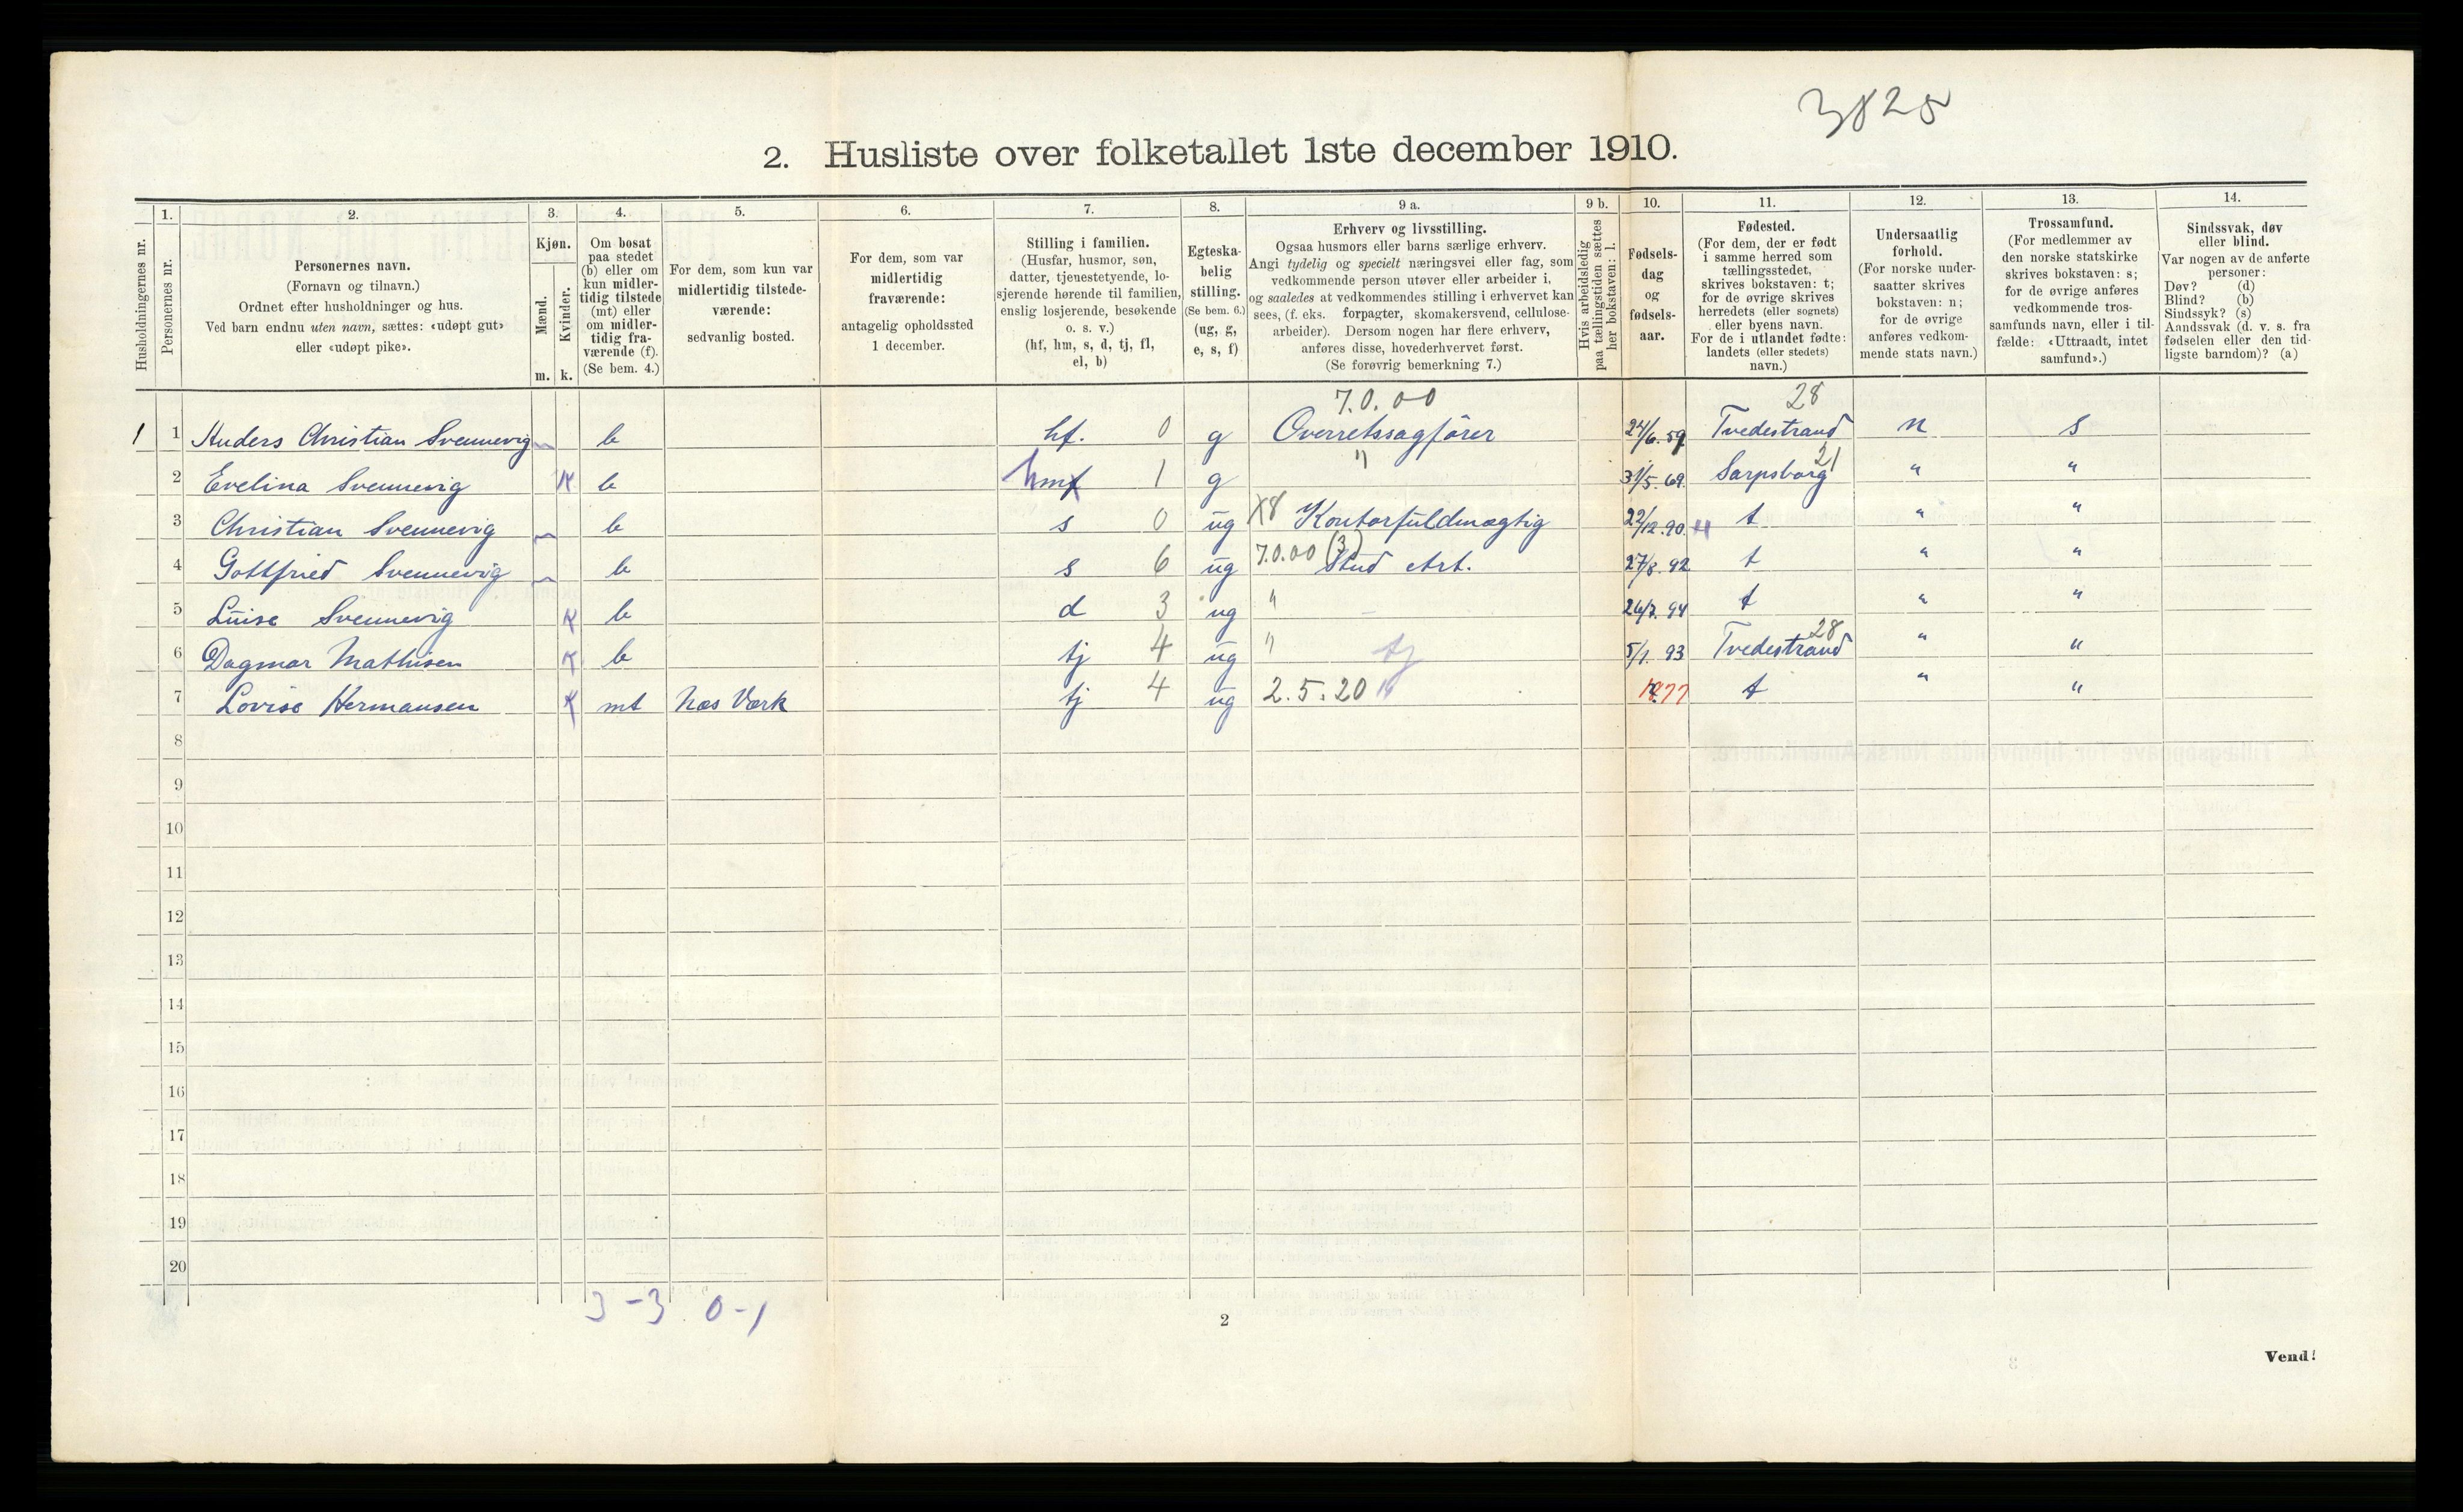 3825
2. Husliste over folketallet 1ste december 1910.
Husholdningernes nr.
1.
Personernes nr.
2.
Personernes navn.
(Fornavn og tilnavn.)
Ordnet efter husholdninger og hus.
Ved barn endnu uten navn, sættes: «udøpt gut»
eller «udøpt pike».
3.
Kjøn.
Mænd.
Kvinder.
m. k.
4.
Om bosat
paa stedet
(b) eller om
kun midler-
tidig tilstede
(mt) eller
om midler-
tidig fra-
værende (f).
(Se bem. 4.)
5.
For dem, som kun var
midlertidig tilstede-
værende:
sedvanlig bosted.
6.
For dem, som var
midlertidig
fraværende:
antagelig opholdssted
1 december.
7.
Stilling i familien.
(Husfar, husmor, søn,
datter, tjenestetyende, lo-
sjerende hørende til familien,
enslig losjerende, besøkende
o. s. v.)
(hf, hm, s, d, tj, fl,
el, b)
8.
Egteska-
belig
stilling.
(Se bem. 6.)
(ug, g,
e, s, f)
9 a.
Erhverv og livsstilling.
Ogsaa husmors eller barns særlige erhverv.
Angi tydelig og specielt næringsvei eller fag, som
vedkommende person utøver eller arbeider i,
og saaledes at vedkommendes stilling i erhvervet kan
sees, (f. eks. forpagter, skomakersvend, cellulose-
arbeider). Dersom nogen har flere erhverv,
anføres disse, hovederhvervet først.
(Se forøvrig bemerkning 7.)
9 b.
Hvis arbeidsledig
paa tællingstiden sættes
her bokstaven: l.
10.
Fødsels-
dag
og
fødsels-
aar.
11.
Fødested.
(For dem, der er født
i samme herred som
tællingsstedet,
skrives bokstaven: t;
for de øvrige skrives
herredets (eller sognets)
eller byens navn.
For de i utlandet fødte:
landets (eller stedets)
navn.)
12.
Undersaatlig
forhold.
(For norske under-
saatter skrives
bokstaven: n;
for de øvrige
anføres vedkom-
mende stats navn.)
13.
Trossamfund.
(For medlemmer av
den norske statskirke
skrives bokstaven: s;
for de øvrige anføres
vedkommende tros-
samfunds navn, eller i til-
fælde: «Uttraadt, intet
samfund».)
14.
Sindssvak, døv
eller blind.
Var nogen av de anførte
personer:
Døv? (d)
Blind? (b)
Sindssyk? (s)
Aandssvak (d. v. s. fra
fødselen eller den tid-
ligste barndom)? (a)
7.0.00 28
1 1 Anders Christian Svennevig b hf. 0 g Overretssagfører 24/6.59 Tvedestrand n s
2 Evelina Svennevig K b hm 1 g " 31/5.69. Sarpsborg 21 " "
3 Christian Svennevig b s 0 ug X8 Kontorfuldmægtig 22/12.90. t " "
4 Gottfried Svennevig b s 6 ug 7.0.00 (3) Stud Art. 27/8.92 t " "
5 Luise Svennevig K b d 3 ug " 26/7.94 t " "
6 Dagmar Mathisen K b tj 4 ug " tj 5/1.93 Tvedestrand 28 " "
7 Lovise Hermansen K mt Næs Værk tj 4 ug 2.5.20 1877 t " "
8
9
10
11
12
13
14
15
16
17
18
19
20
3-3 0-1
2
Vend!